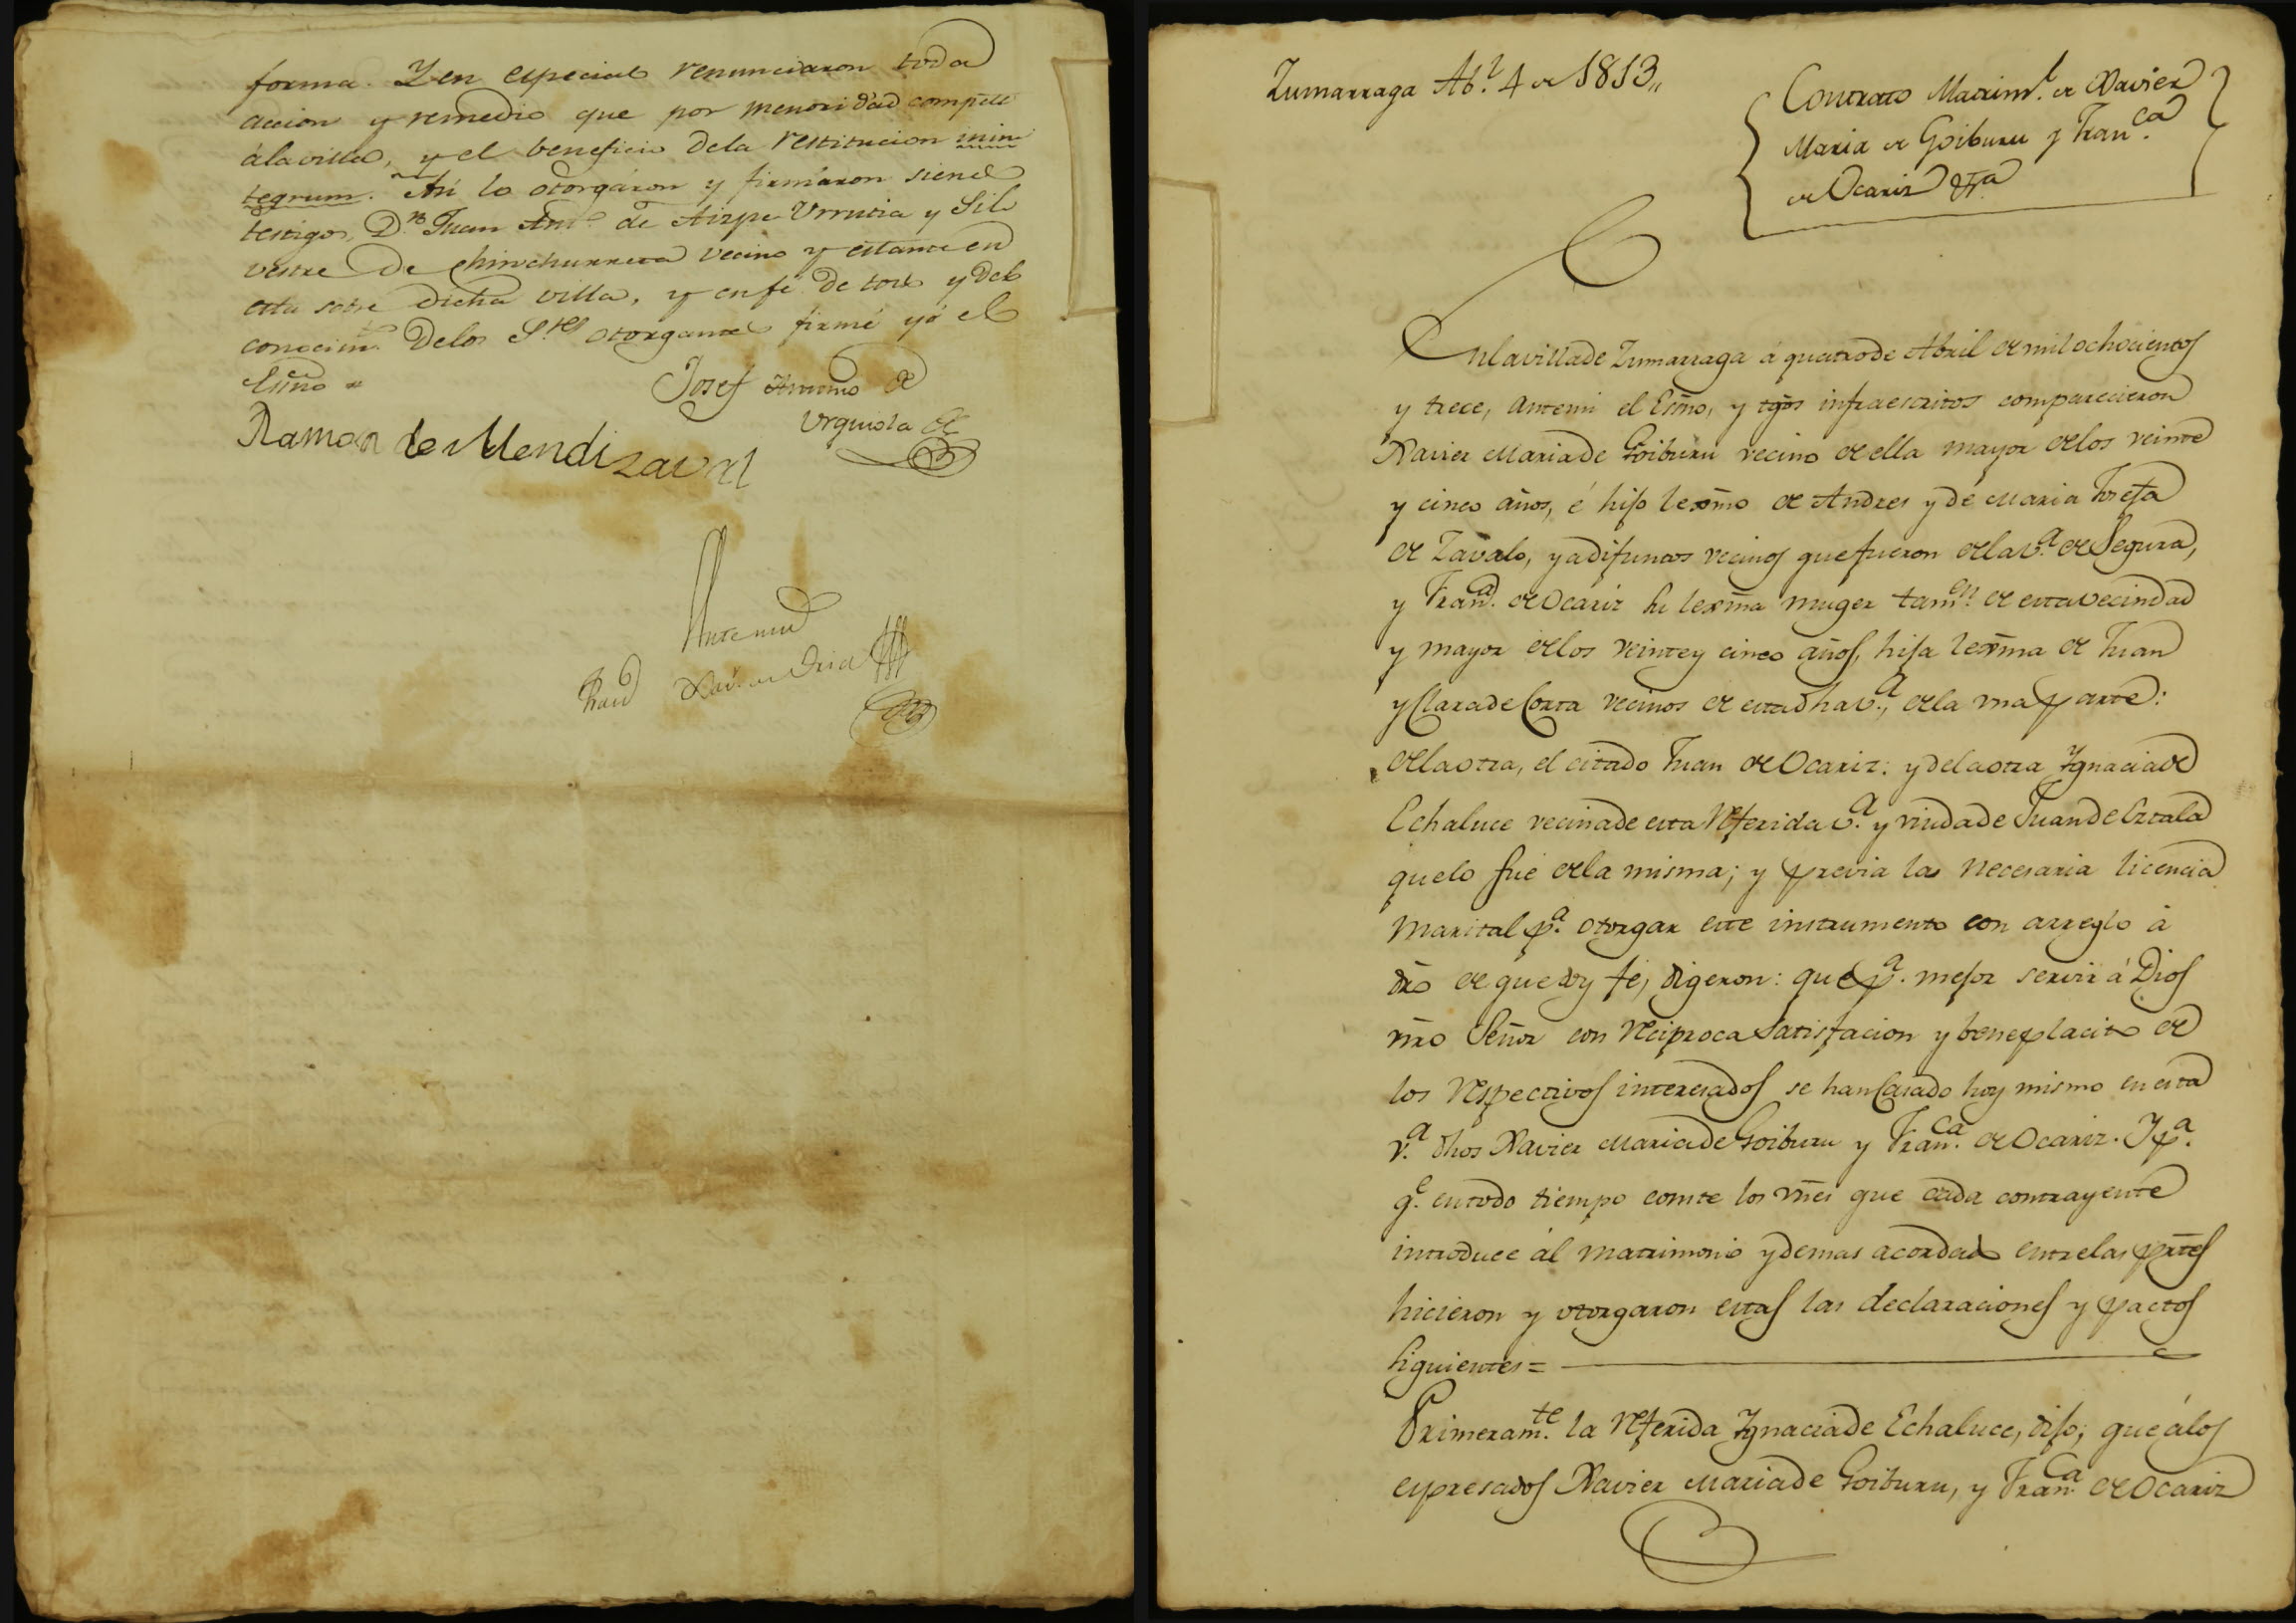 forma. Y en especial renunciaron toda
accion y remedio que por menoridad compete
á la villa, y el beneficio de la restitucion inin
tegrum. Asi lo otorgáron y firmáron siendo
testigos, D.n Juan Ant.o de Aizpe Urrutia y Sil
vestre de Chinchurreta vecino y estante en
esta sobre dicha villa, y en fé de todo y del
conocim.to de los S.res otorgantes firmé yó el
Esño =
Josef Antonio de
Urquiola
Ramon de Mendizaval
Antemi
Fran.co Xavier de Oria
Zumarraga Ab.l 4 de 1813,,
Contrato Matrim.l de Xavier
Maria de Goiburu y Fran.ca
de Ocariz &.a
En la villa de Zumarraga á quatro de Abril de mil ochocientos
y trece, antemi el Esño, y tgos infraescritos comparecieron
Xavier Maria de Goiburu vecino de ella mayor de los veinte
y cinco años, é hijo lexmo de Andres y de Maria Josefa
de Zavalo, ya difuntos vecinos que fueron de la v.a de Segura,
y Fran.a de Ocariz su lexma muger tam.en de esta vecindad
y mayor de los veinte y cinco años, hija lexma de Juan
y Clara de Corta vecinos de esta dha v.a, de la una parte:
de la otra, el citado Juan de Ocariz: y de la otra Ygnacia de
Echaluce vecina de esta referida v.a y viuda de Juan de Eztala
que lo fué de la misma; y previa la necesaria licencia
marital p.a otorgar este instrumento con arreglo á
dro de que doy fé, digeron: que p.a mejor servir á Dios
nro Señor con reciproca satisfacion y beneplacito de
los respectivos interesados se han casado hoy mismo en esta
v.a dhos Xavier Maria de Goiburu y Fran.ca de Ocariz. Y p.a
q.e en todo tiempo conste los vnes que cada contrayente
introduce ál matrimonio y demas acordado entre las prtes
hicieron y otorgaron estas las declaraciones y pactos
siguientes =
Primeram.te la referida Ygnacia de Echaluce, dijo; que á los
expresados Xavier Maria de Goiburu, y Fran.ca de Ocariz